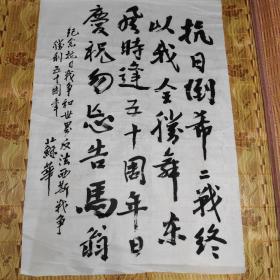 抗日倒希二战终
以我全胜舞东
风时逢五十周年日
庆祝勿忘告马翁
纪念抗日战争和世界反法西斯战争
胜利五十周年
蘇華